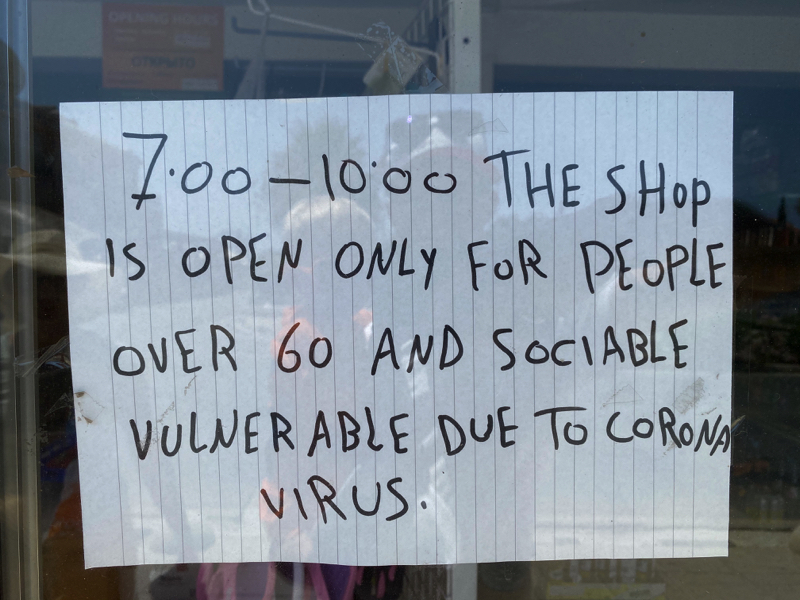 OPENING HOURS
ОТКРЫТО
7.00 – 10.00 THE SHOP
IS OPEN ONLY FOR PEOPLE
OVER 60 AND SOCIABLE
VULNERABLE DUE TO CORONA
VIRUS.